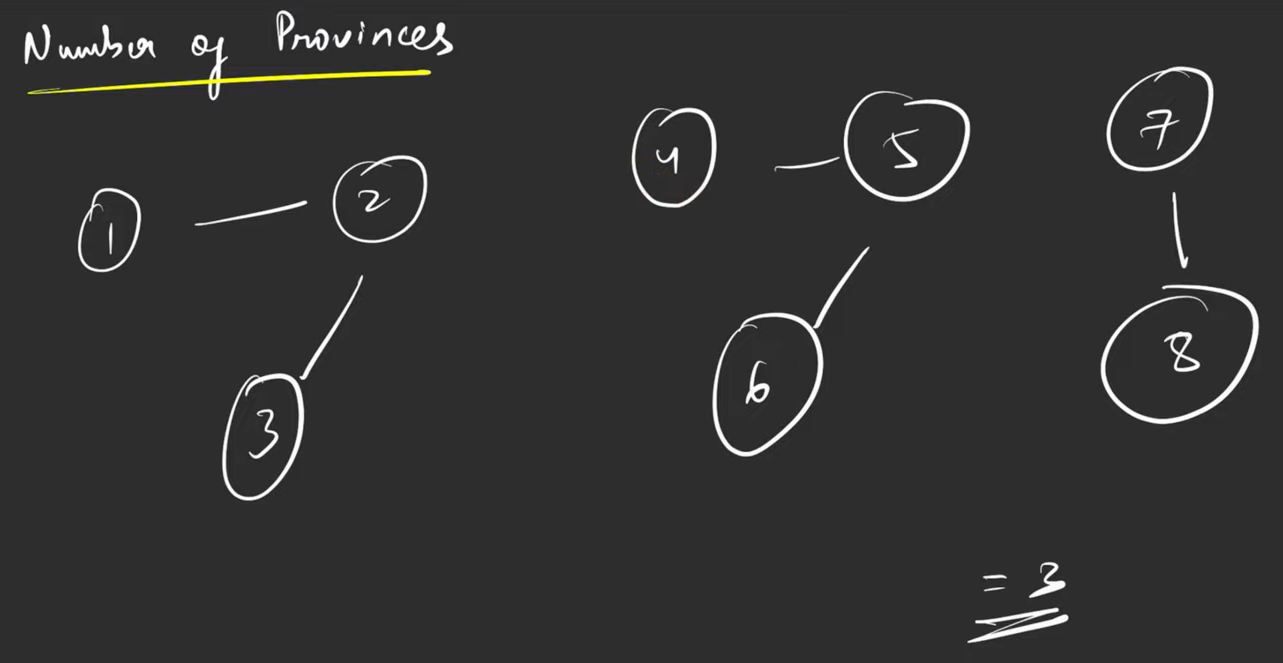 Number of Provinces
1
2
3
4
5
6
7
8
= 3